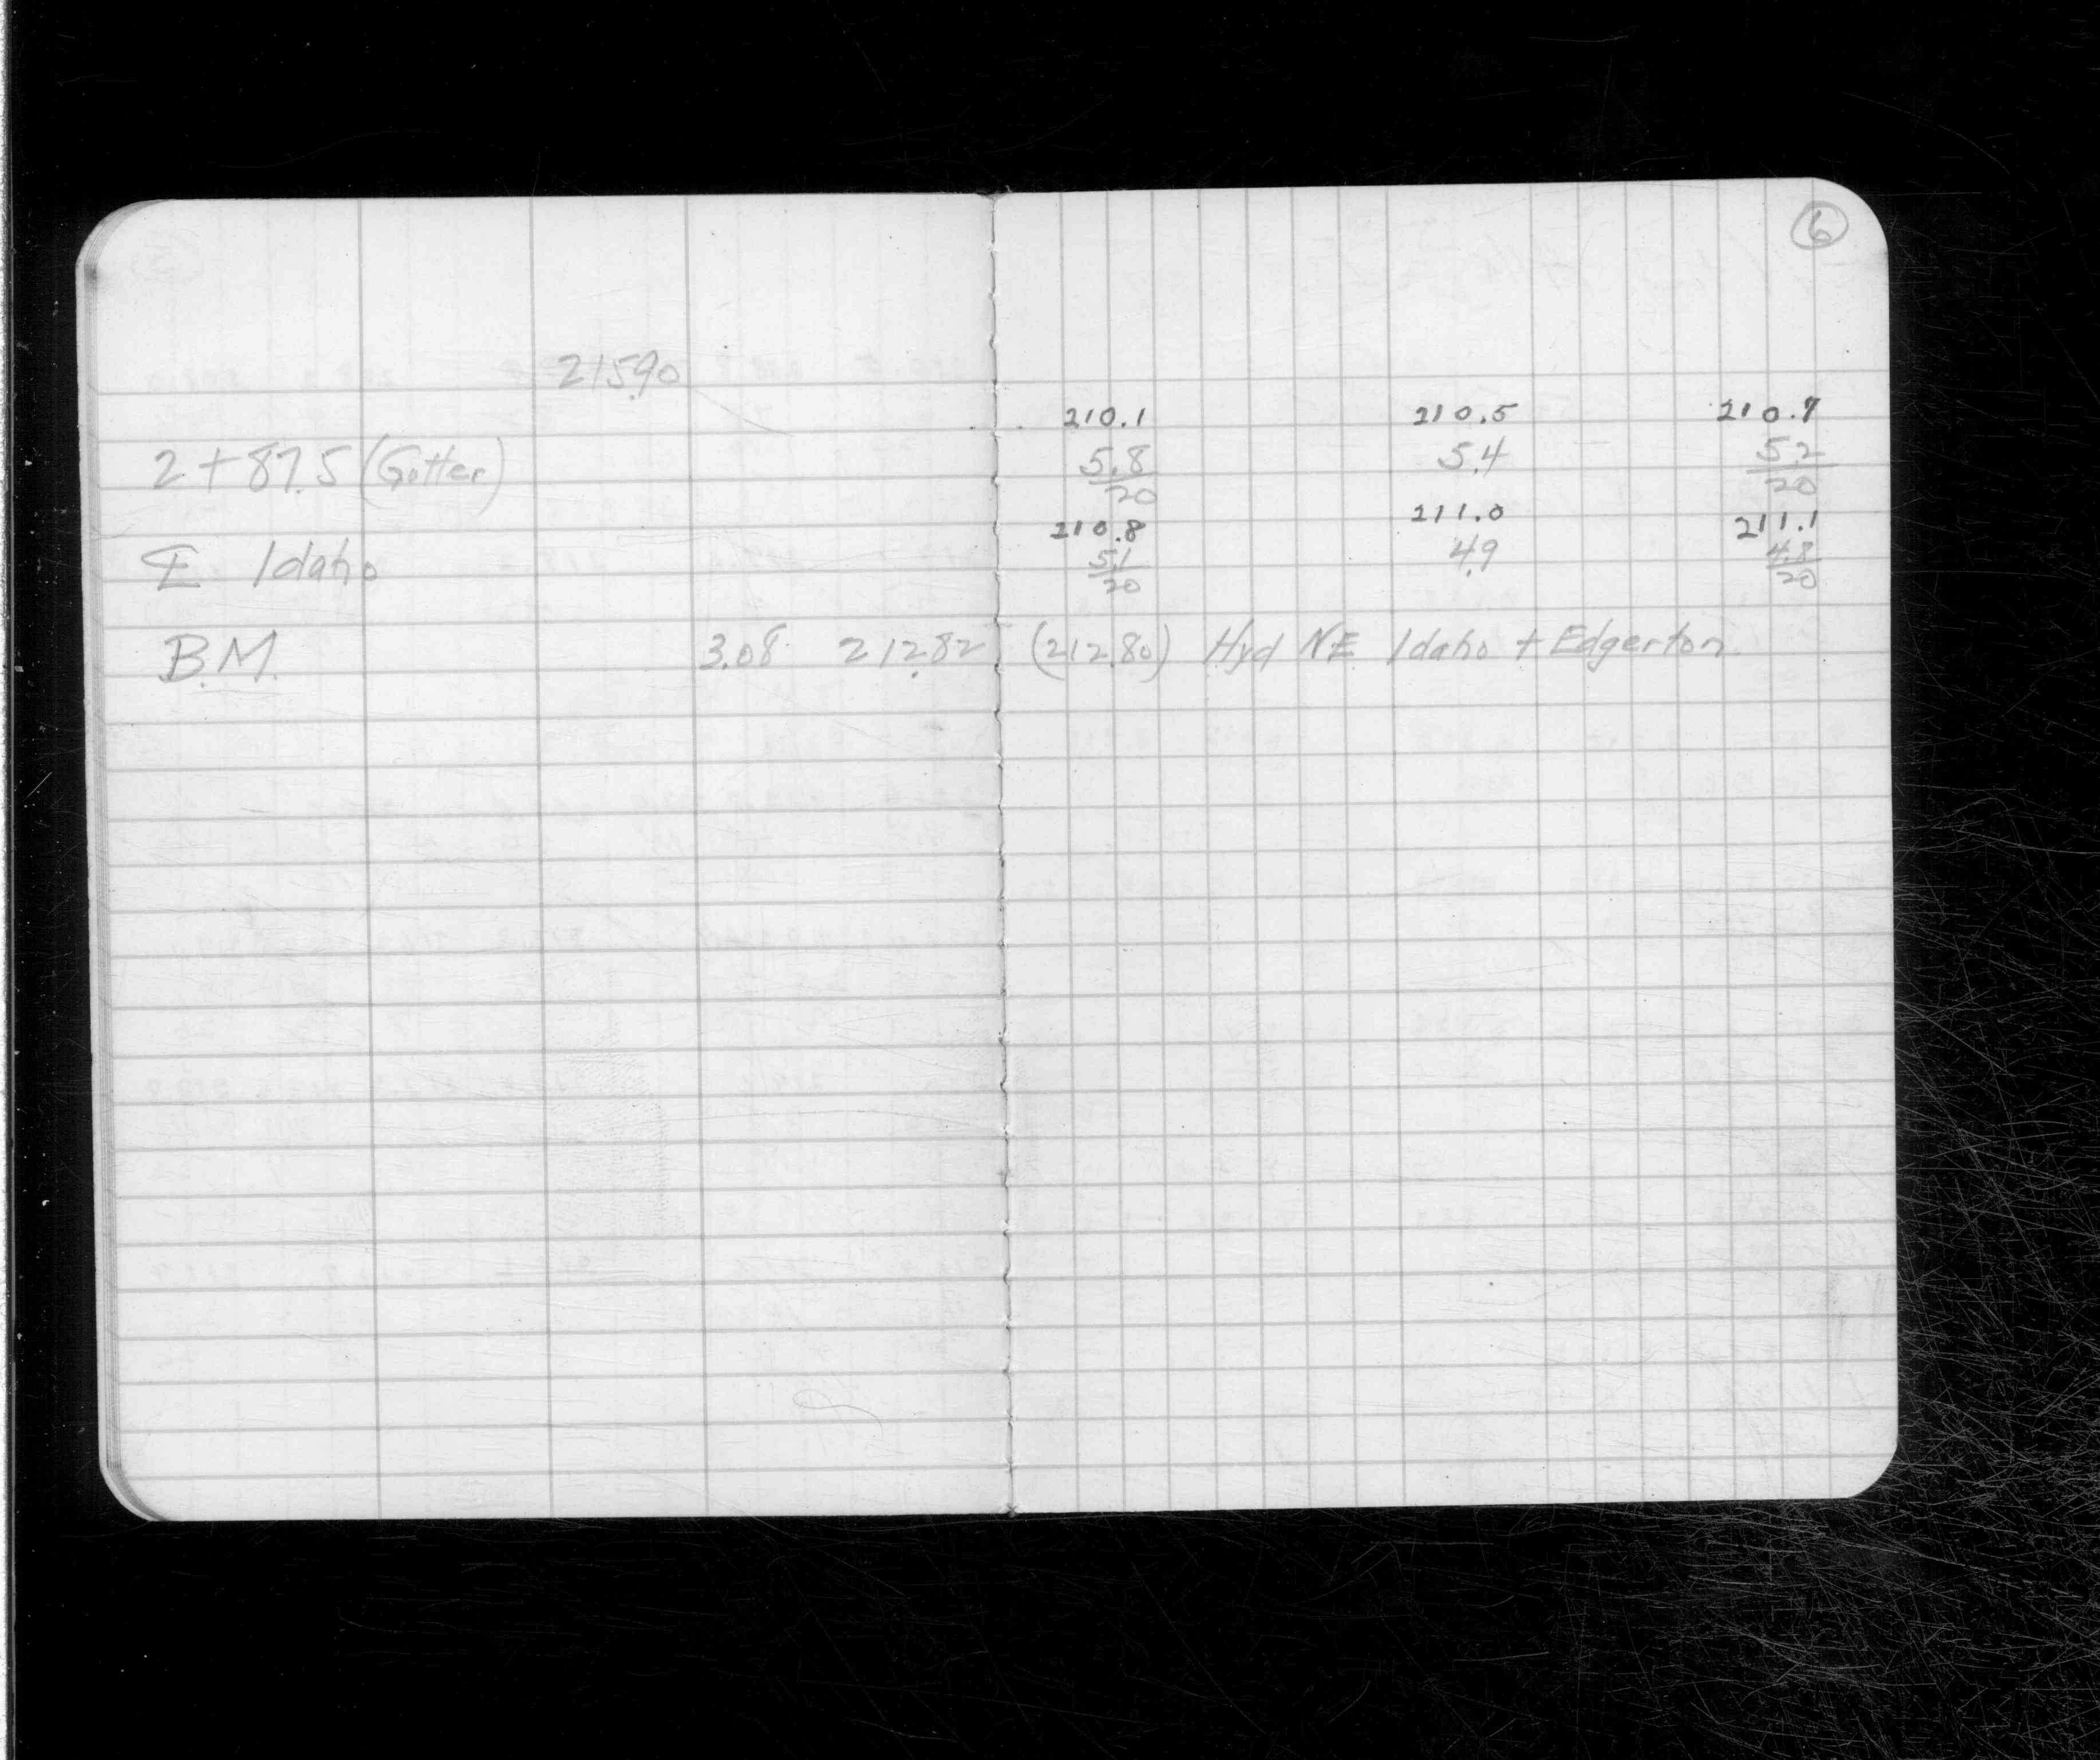 6
215.90
210.1 210.5 210.7
2+87.5 (Gutter) 5.8 5.4 5.2
20 20
210.8 211.0 211.1
℄ Idaho 5.1 4.9 4.8
20 20
B.M. 3.08 212.82 (212.80) Hyd NE Idaho + Edgerton